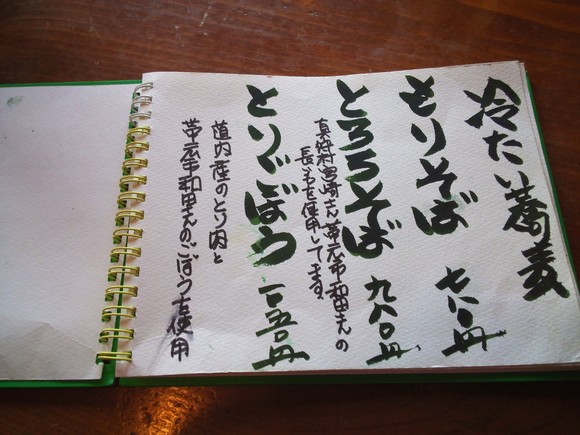 冷たい蕎麦
もりそば 七八〇円
とろろそば 九八〇円
真狩村宮崎さん、帯広市和田さんの
長いもを使用してます。
とりごぼう 一〇五〇円
道内産のとり肉と
帯広市和田さんのごぼうを使用